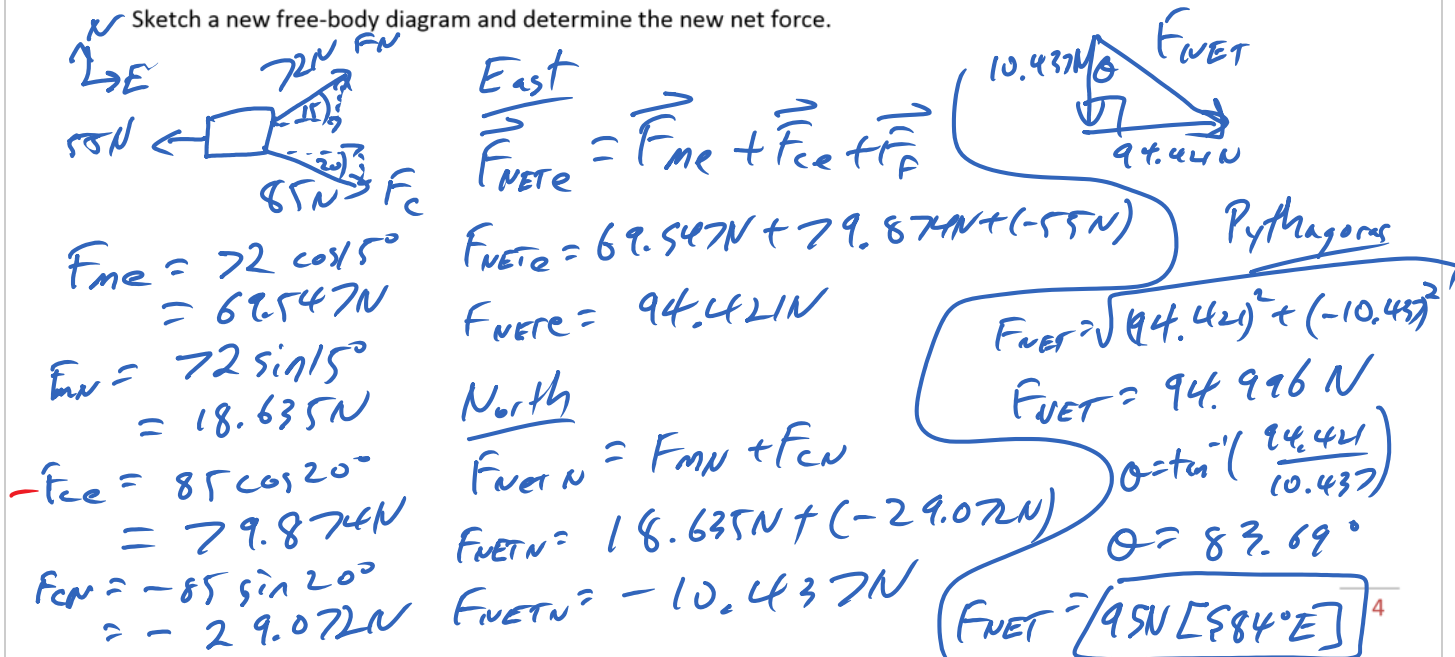 Sketch a new free-body diagram and determine the new net force.
N
E
72N FN
15
55N
20
85N Fc
Fme = 72 cos15°
= 69.547N
FmN = 72 sin15°
= 18.635N
-Fce = 85 cos20°
= 79.874N
FcN = -85 sin20°
= -29.072N
East
FNETe = Fme + Fce + FF
FNETe = 69.547N + 79.874N + (-55N)
FNETe = 94.421N
North
FNETN = FMN + FCN
FNETN = 18.635N + (-29.072N)
FNETN = -10.437N
10.437N θ FNET
94.421N
Pythagoras
FNET = √(94.421)² + (-10.437)²
FNET = 94.996 N
θ = tan⁻¹(94.421/10.437)
θ = 83.69°
FNET = 95N [S84°E]
4